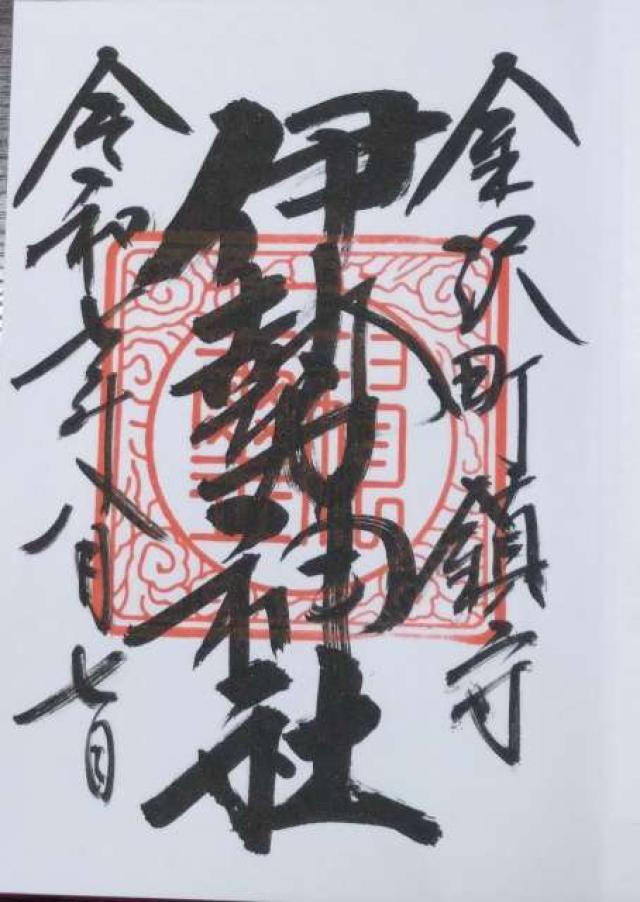 金沢町鎮守
伊勢神社
令和七年八月七日